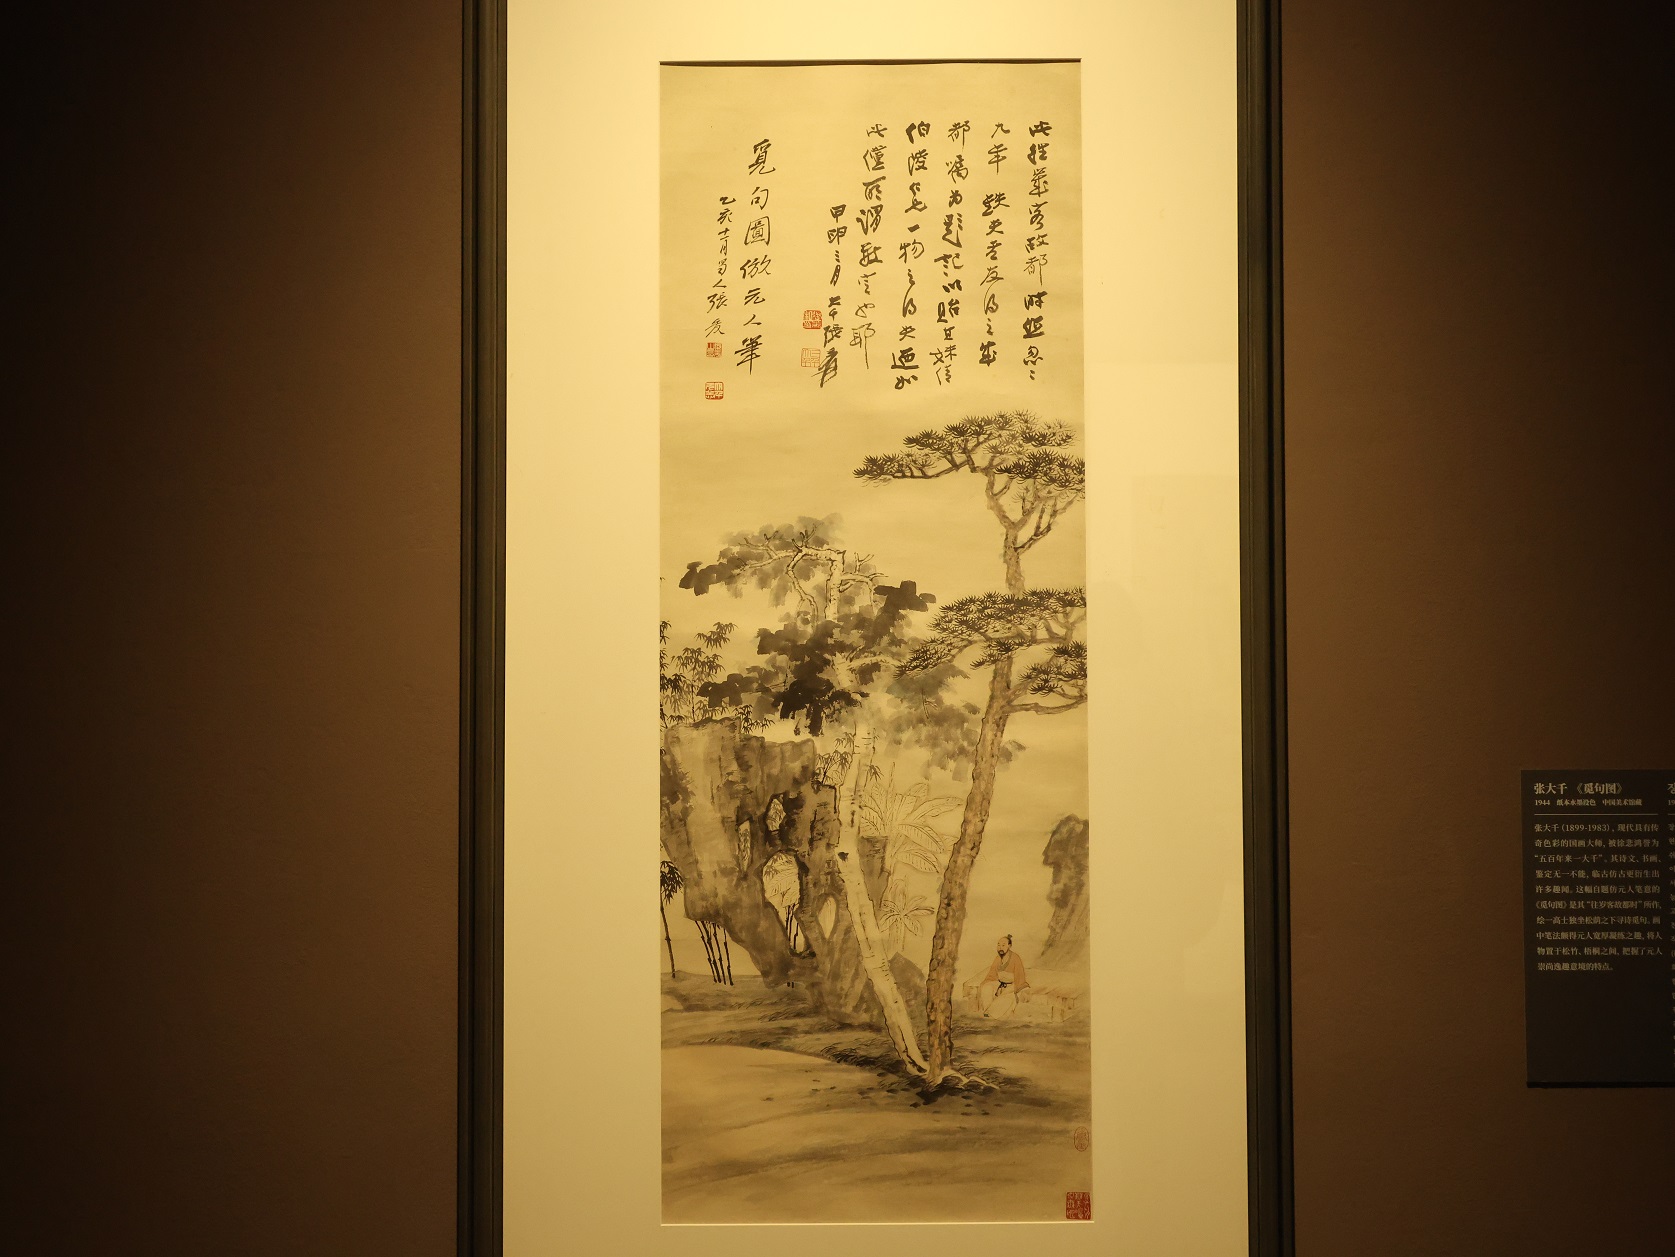 此往岁客故都时  匆匆
九年 铁夫吾友得之成
都嘱为题记以贻其妹倩
伯陵 一物之得失迺如
此仅所谓数定也耶
甲申三月 大千张爰
覓句圖倣元人筆
乙亥十一月蜀人張爰
张大千《觅句图》
1944 纸本水墨设色 中国美术馆藏
张大千（1899-1983），现代具有传
奇色彩的国画大师，被徐悲鸿誉为
“五百年来一大千”，其诗文、书画、
鉴定无一不能，临古仿古更衍生出
许多趣闻。这幅自题仿元人笔意的
《觅句图》是其“往岁客故都时”所作，
绘一高士独坐松荫之下寻诗觅句。画
中笔法颇得元人宽厚凝练之趣，将人
物置于松竹、梧桐之间，把握了元人
崇尚逸趣意境的特点。